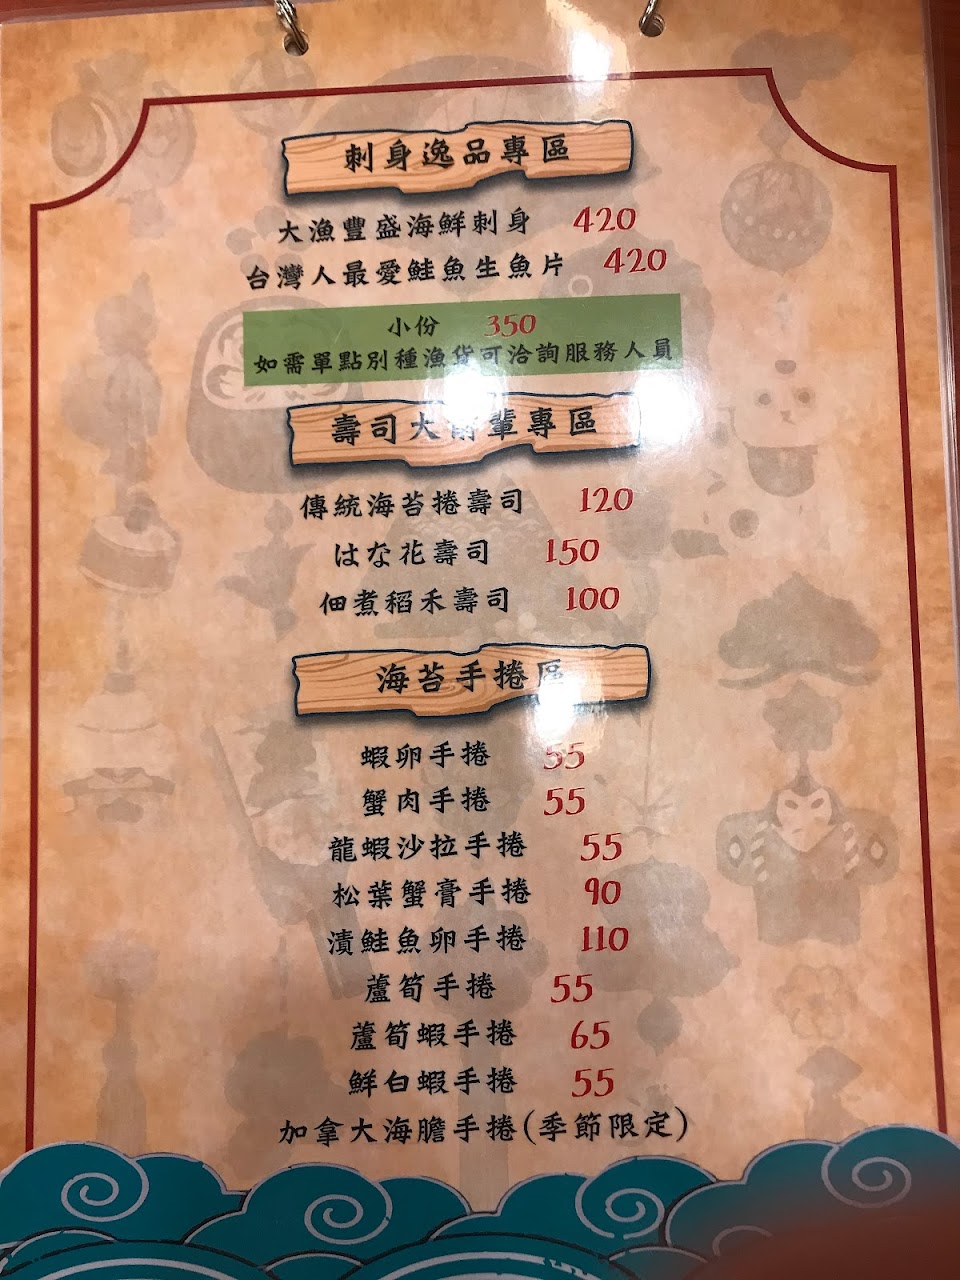 刺身逸品專區
大漁豐盛海鮮刺身 420
台灣人最愛鮭魚生魚片 420
小份 350
如需單點別種漁貨可洽詢服務人員
壽司大前輩專區
傳統海苔捲壽司 120
はな花壽司 150
佃煮稻禾壽司 100
海苔手捲區
蝦卵手捲 55
蟹肉手捲 55
龍蝦沙拉手捲 55
松葉蟹膏手捲 90
漬鮭魚卵手捲 110
蘆筍手捲 55
蘆筍蝦手捲 65
鮮白蝦手捲 55
加拿大海膽手捲(季節限定)